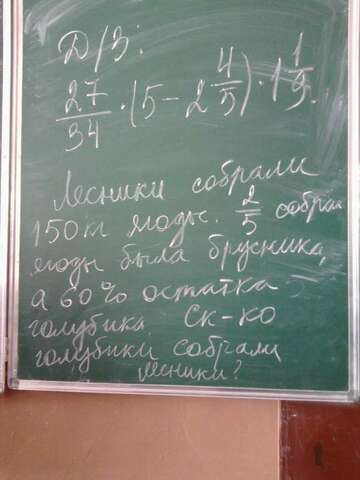 Д/З:
27/34 · (5 - 2 4/5) · 1 1/9.
Лесники собрали
150 кг ягоды. 2/5 собран
ягоды была брусника,
а 60% остатка
голубика. Ск-ко
голубики собрали
лесники?